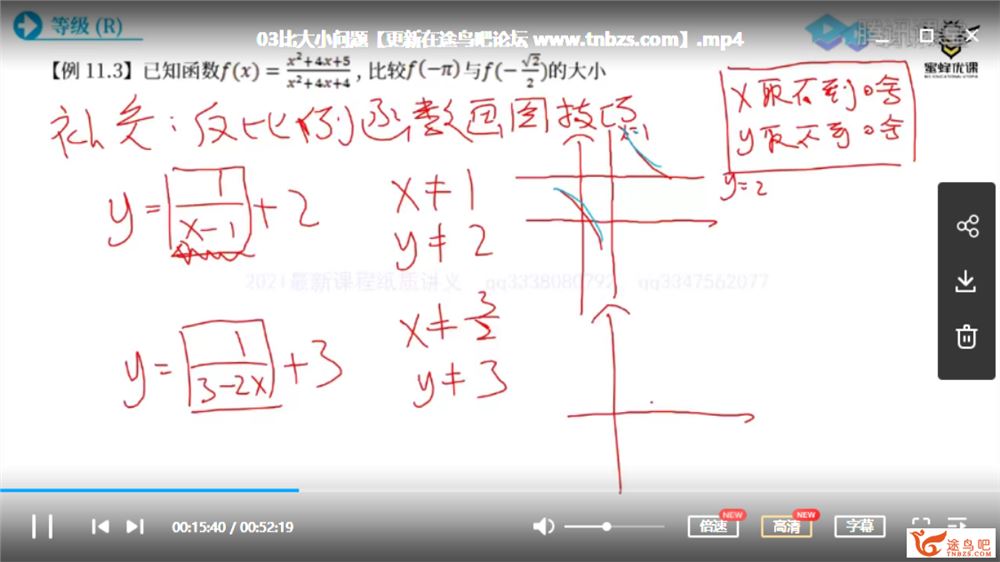 等级 (R)
腾讯课堂
03比大小问题【更新在途鸟吧论坛 www.tnbzs.com】.mp4
蜜蜂优课
【例 11.3】已知函数f(x)=\frac{x²+4x+5}{x²+4x+4}, 比较f(−π)与f(−\frac{√2}{2})的大小
补充：反比例函数画图技巧
x=1
x取不到啥
y取不到啥
y=2
y=\frac{1}{x-1}+2
x≠1
y≠2
2021最新课程纸质讲义 qq3338080792 qq3347562077
y=\frac{1}{3-2x}+3
x≠\frac{3}{2}
y≠3
00:15:40 / 00:52:19
倍速 NEW
高清 NEW
字幕
途鸟吧
TNBZS.COM